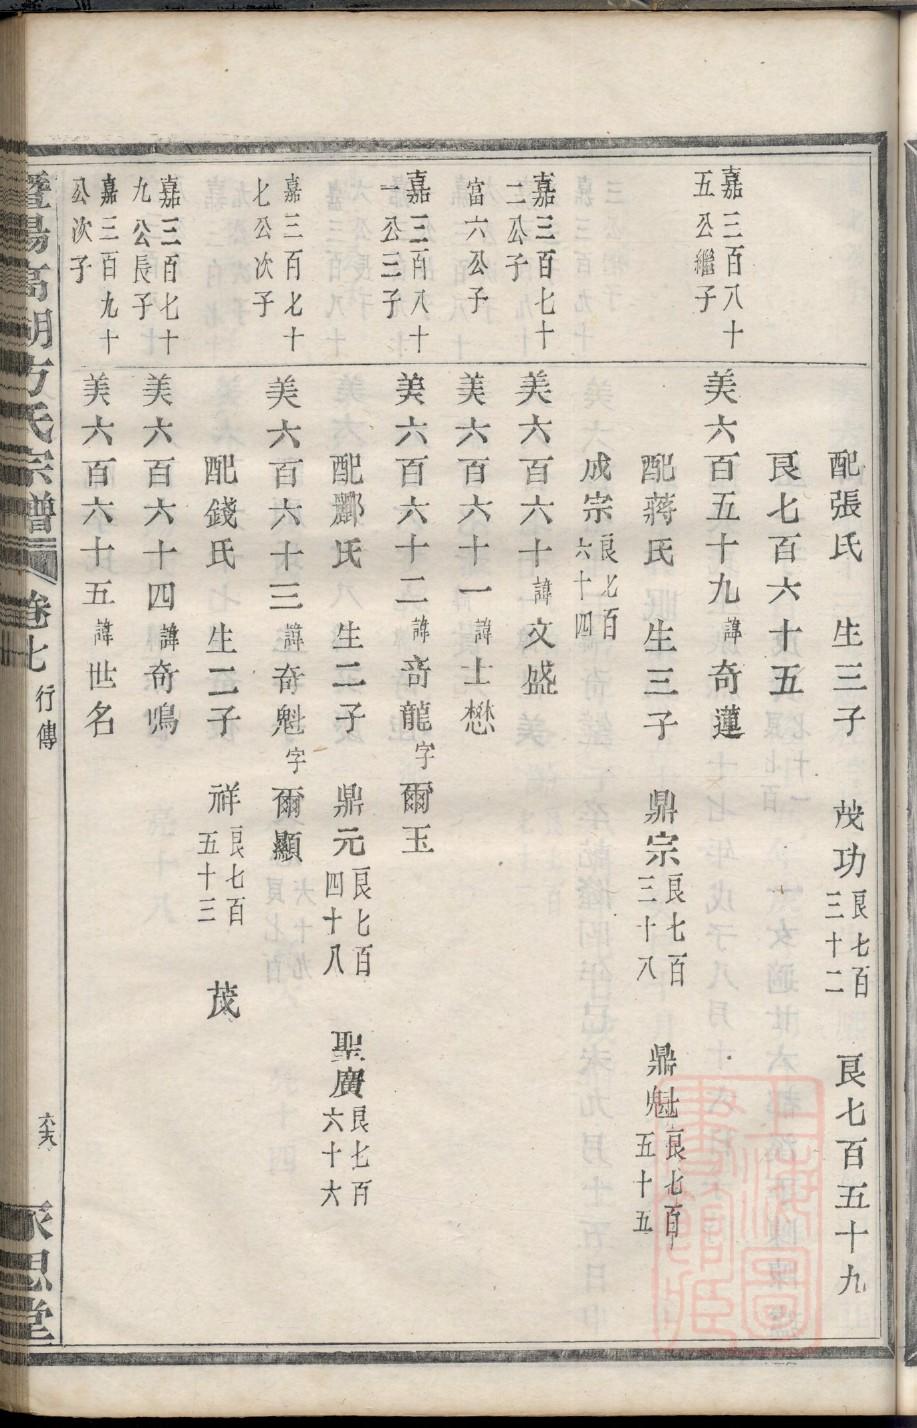 配張氏 生三子 茂功良七百三十二 良七百五十九
良七百六十五
嘉三百八十五公繼子 美六百五十九諱奇蓮
配蔣氏 生三子 鼎宗良七百三十八 鼎魁良七百五十五
成宗良七百六十四
嘉三百七十二公子 美六百六十諱文盛
富六公子 美六百六十一諱士懋
嘉三百八十一公三子 美六百六十二諱奇龍字爾玉
配酈氏 生二子 鼎元良七百四十八 聖廣良七百六十六
嘉三百七十七公次子 美六百六十三諱奇魁字爾顯
配錢氏 生二子 祥良七百五十三 茂
嘉三百七十九公長子 美六百六十四諱奇鳴
嘉三百九十公次子 美六百六十五諱世名
暨陽高湖方氏宗譜 卷七 行傳 永思堂